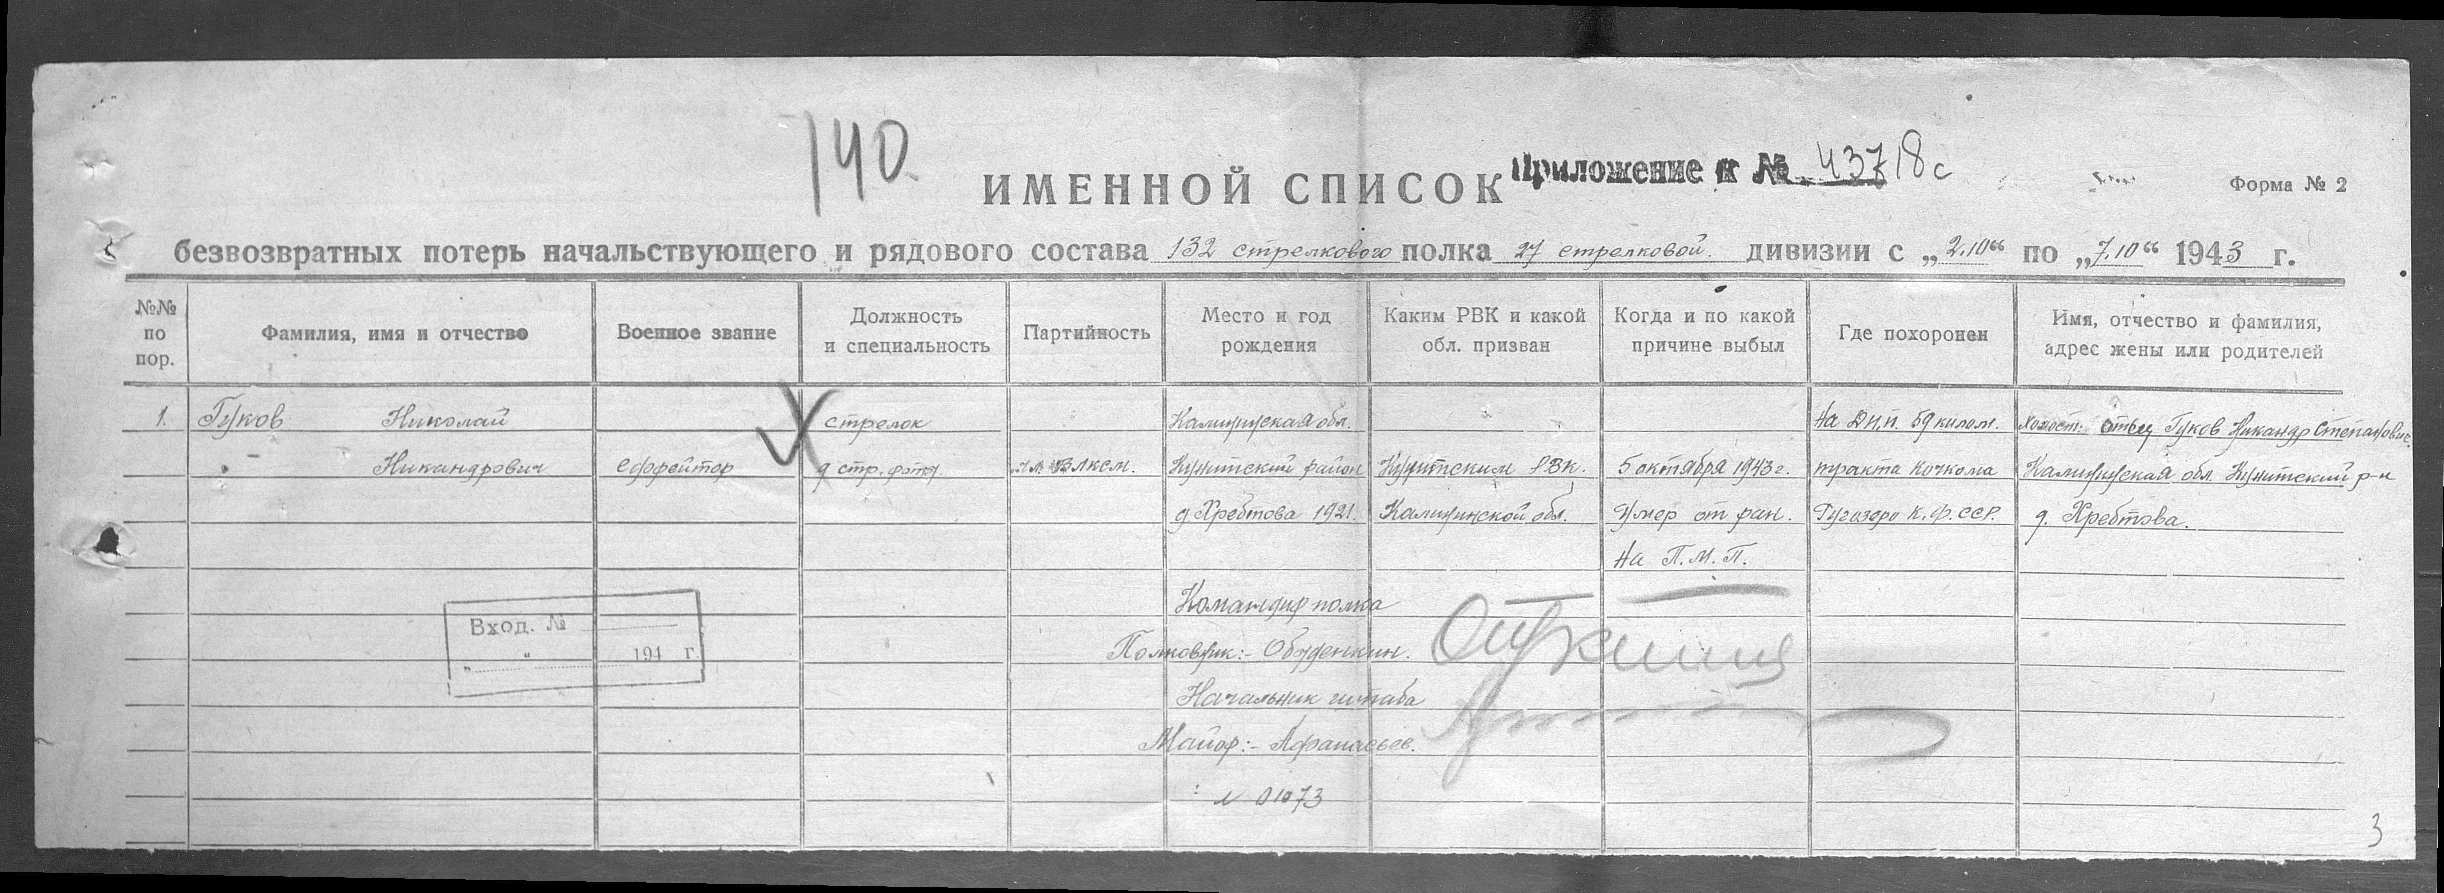 140
Приложение к № 43718с
ИМЕННОЙ СПИСОК
Форма № 2
безвозвратных потерь начальствующего и рядового состава 132 стрелкового полка 27 стрелковой дивизии с „2.10“ по „7.10“ 1943 г.
№№ по пор.
Фамилия, имя и отчество
Военное звание
Должность и специальность
Партийность
Место и год рождения
Каким РВК и какой обл. призван
Когда и по какой причине выбыл
Где похоронен
Имя, отчество и фамилия, адрес жены или родителей
1. Гуков Николай стрелок Калининская обл. На Дн.п. 59 килом. Холост: отец Гуков Никандр Степанович
Никандрович ефрейтор стр. ВЛКСМ. район РВК. 5 октября 1943 г. тракта Кочкома Калининская обл. р-н
д Хребтова 1921. Калининской обл. Умер от ран. К.Ф.ССР. д. Хребтова.
на П.М.П.
Командир полка
Полковник:- Обуденкин.
Начальник штаба
Майор:- Афанасьев.
N 01073
Вход. №
„ “ 194 г.
3